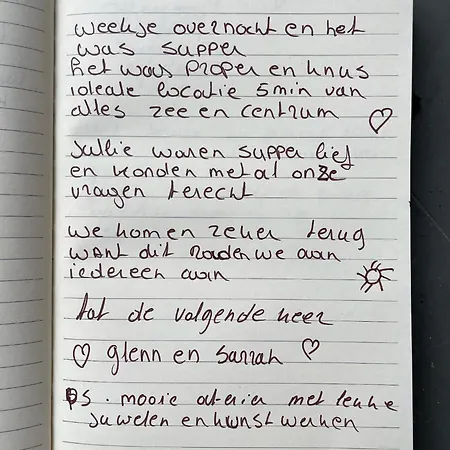 weekje overnacht en het
was supper
het was proper en knus
ideale locatie 5 min van
alles zee en centrum
Jullie waren supper lief
en konden met al onze
vragen terecht
we komen zeker terug
want dit raden we aan
iedereen aan
tot de volgende keer
glenn en Sarrah
PS. mooie atelier met leuke
juwelen en kunst werken